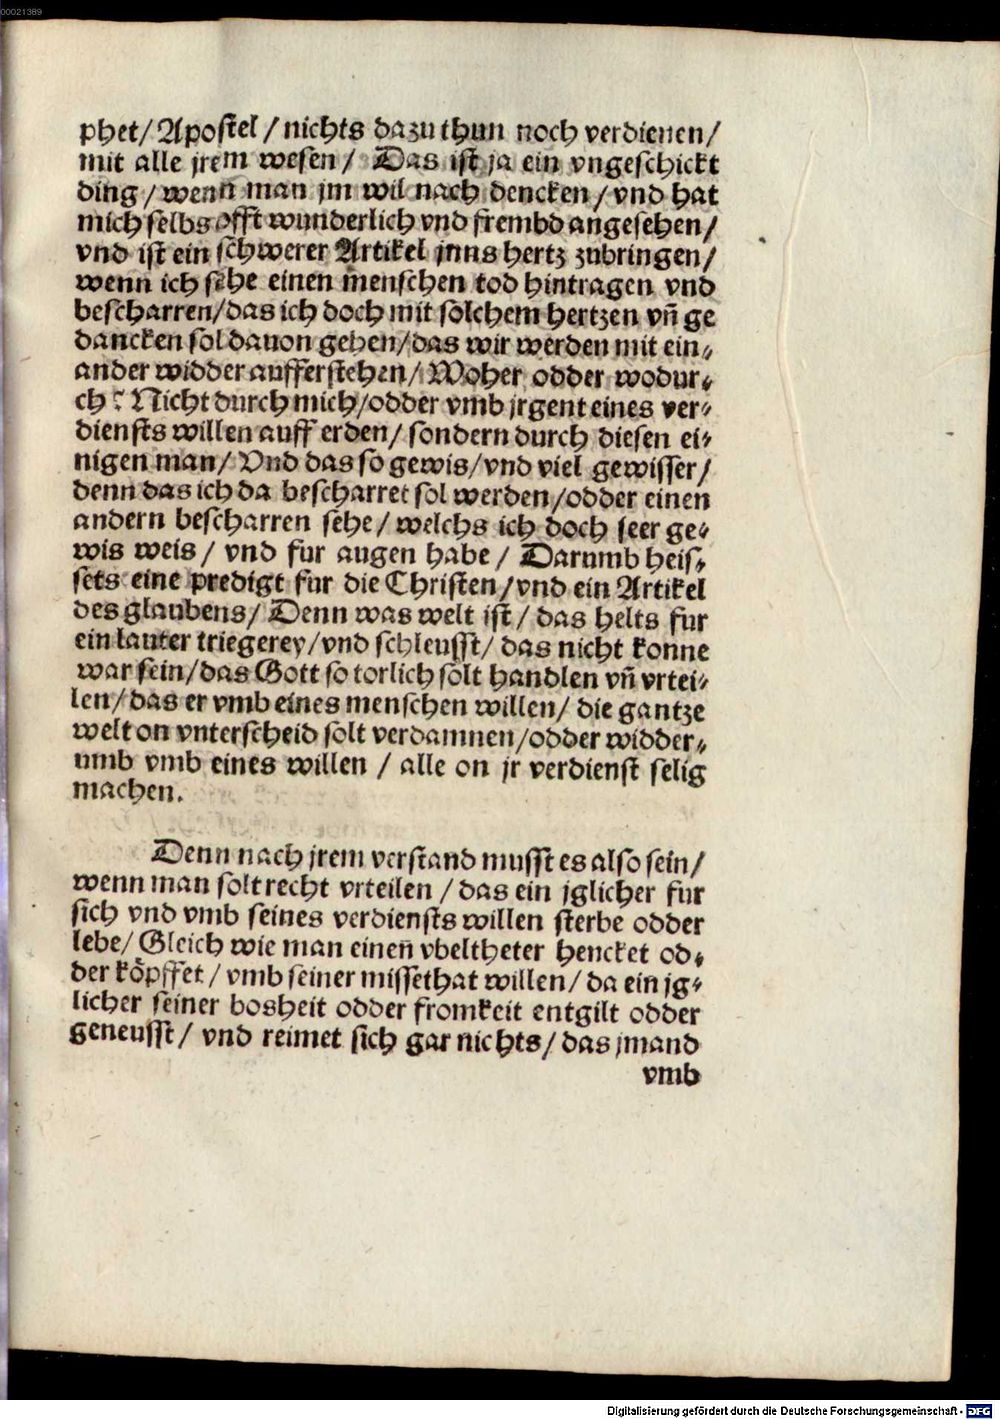 00021389
phet/ Apostel / nichts dazu thun noch verdienen/
mit alle jrem wesen / Das ist ja ein vngeschickt
ding / wenn man jm wil nach dencken / vnd hat
mich selbs offt wunderlich vnd frembd angesehen/
vnd ist ein schwerer Artikel jnns hertz zubringen/
wenn ich sehe einen menschen tod hintragen vnd
bescharren/das ich doch mit solchem hertzen vñ ge
dancken sol dauon gehen/das wir werden mit ein⸗
ander widder aufferstehen/ Woher odder wodur⸗
ch? Nicht durch mich/odder vmb jrgent eines ver⸗
diensts willen auff erden/ sondern durch diesen ei⸗
nigen man/ Vnd das so gewis/vnd viel gewisser/
denn das ich da bescharret sol werden/odder einen
andern bescharren sehe/ welchs ich doch seer ge⸗
wis weis / vnd fur augen habe / Darumb heis⸗
sets eine predigt fur die Christen/vnd ein Artikel
des glaubens/ Denn was welt ist/ das helts fur
ein lauter triegerey/vnd schleusst/ das nicht konne
war sein/das Gott so torlich solt handlen vñ vrtei⸗
len/das er vmb eines menschen willen/ die gantze
welt on vnterscheid solt verdamnen/odder widder⸗
umb vmb eines willen / alle on jr verdienst selig
machen.
Denn nach jrem verstand musst es also sein/
wenn man solt recht vrteilen / das ein jglicher fur
sich vnd vmb seines verdiensts willen sterbe odder
lebe/ Gleich wie man eineñ vbeltheter hencket od⸗
der köpffet/ vmb seiner missethat willen/ da ein jg⸗
licher seiner bosheit odder fromkeit entgilt odder
geneusst/ vnd reimet sich gar nichts/ das jmand
vmb
Digitalisierung gefördert durch die Deutsche Forschungsgemeinschaft - DFG